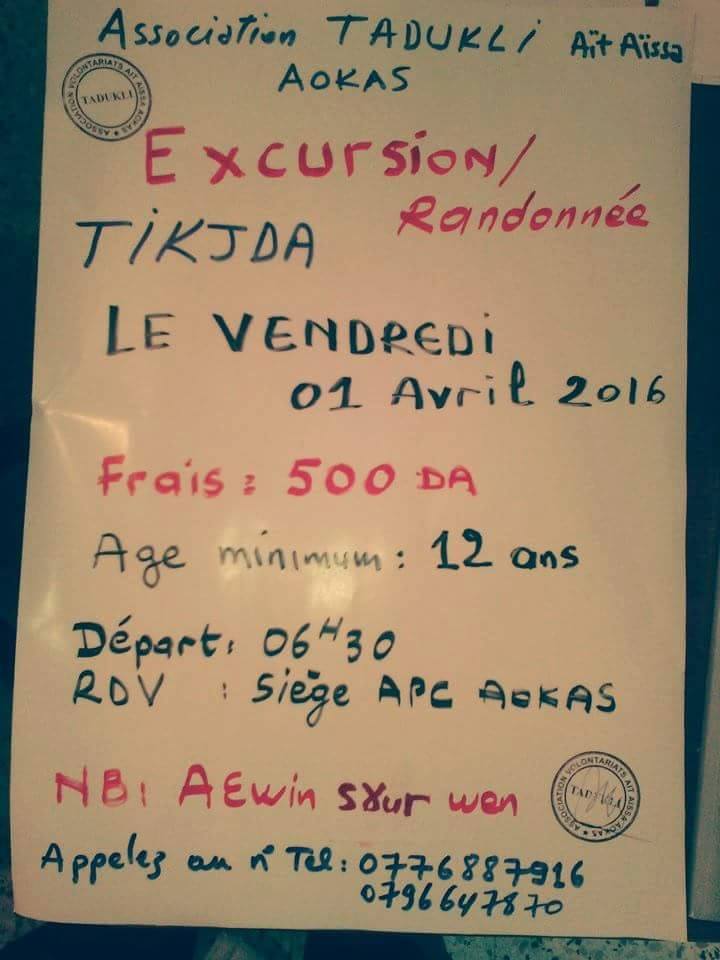 Association TADUKLI Aït Aïssa
AOKAS
ASSOCIATION VOLONTARIATS AIT AISSA AOKAS ★
TADUKLI
Excursion/
Randonnée
TiKJDA
LE VENDREDi
01 Avril 2016
Frais : 500 DA
Age minimum : 12 ans
Départ : 06H30
RDV : Siège APC AOKAS
NB : AEwin sɣur wen
ASSOCIATION VOLONTARIATS AIT AISSA AOKAS ★
TADUKLI
Appelez au n° Tel : 0776887916
0796647870